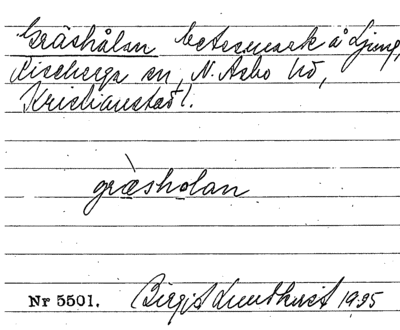 Gräshålan betesmark å Ljung,
Riseberga sn, N. Åsbo hd,
Kristianstad l.
græsholan
Nr 5501. Birgit Lundkvist 1935